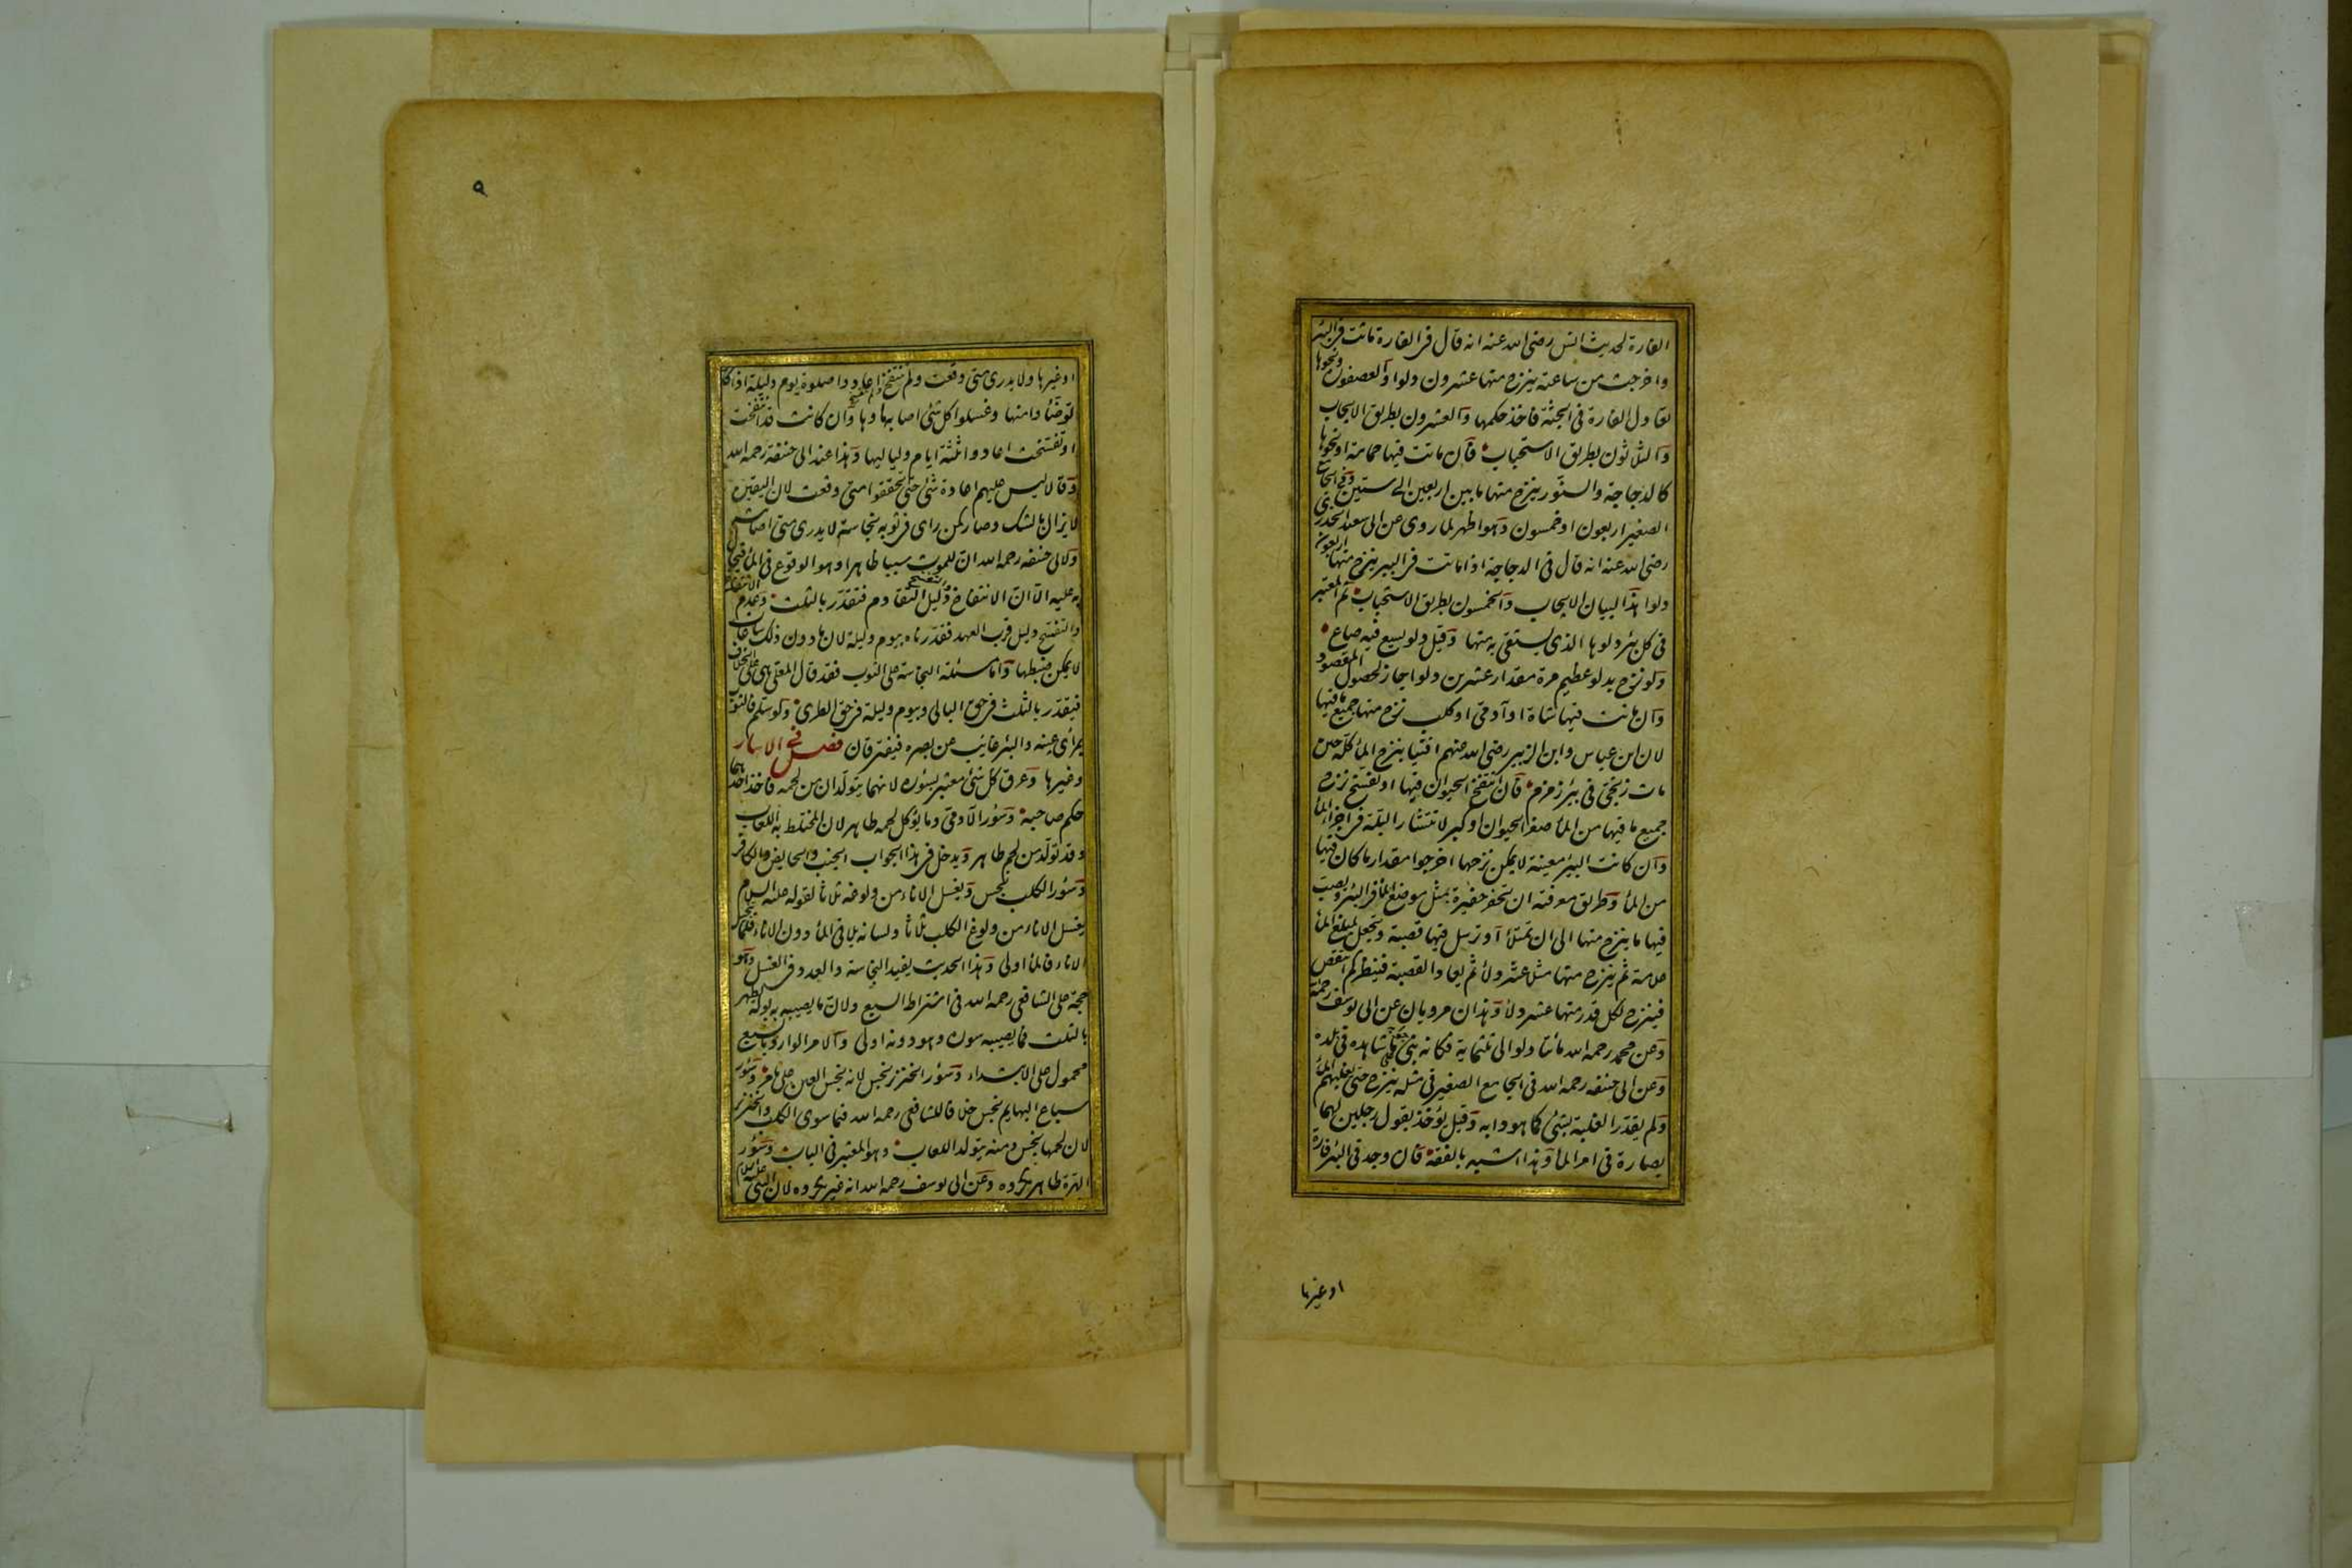 الفارة لحديث انس رضي الله عنه انه قال في الفارة ماتت في البئر
واخرجت من ساعته ينزح منها عشرون دلوا والعصفور ونحوها
تعادل الفارة في الجثة فاخذ حكمها والعشرون بطريق الايجاب
والثلاثون بطريق الاستحباب فان ماتت فيها حمامة او نحوها
كالدجاجة والسنور ينزح منها ما بين اربعين الى ستين وفي الجامع
الصغير اربعون او خمسون وهو اظهر لما روى عن ابى سعيد الخدرى
رضي الله عنه انه قال في الدجاجة اذا ماتت في البير ينزح منها اربعون
دلوا هذا لبيان الايجاب والخمسون بطريق الاستحباب ثم المعتبر
في كل بئر دلوها الذي يستقى به منها وقيل دلو يسع فيه صاع
ولو نزح بدلو عظيم مرة مقدار عشرين دلوا جاز لحصول المقصود
وان ماتت فيها شاة او آدمي او كلب نزح منها جميع ما فيها
لان ابن عباس وابن الزبير رضي الله عنهم افتيا بنزح الماء كله حين
مات زنجي في بئر زمزم فان انتفخ الحيوان فيها او تفسخ نزح
جميع ما فيها من الماء صغر الحيوان او كبر لانتشار البلة في اجزاء الماء
وان كانت البير معينة لا يمكن نزحها اخرجوا مقدار ما كان فيها
من الماء وطريق معرفته ان تحفر حفيرة بمثل موضع الماء في البئر ويصب
فيها ما ينزح منها الى ان تمتلأ او ترسل فيها قصبة وتجعل لمبلغ الماء
علامة ثم ينزح منها مثل عشر دلاء ثم تعاد القصبة فينظر كم انتقص
فينزح لكل قدر منها عشر دلاء وهذان مرويان عن ابى يوسف رحمه الله
وعن محمد رحمه الله مائتا دلو الى ثلثماية فكانه بنى على ما شاهده في بلده
وعن ابى حنيفه رحمه الله في الجامع الصغير في مثله ينزح حتى يغلبهم الماء
ولم يقدر الغلبة بشئ كما هو دابه وقيل يؤخذ بقول رجلين لهما
بصارة في امر الماء وهذا اشبه بالفقه فان وجد في البئر فارة
او غيرها
٩
او غيرها ولا يدرى متى وقعت ولم تنتفخ اعادوا صلوة يوم وليلة اذا كا
توضئوا منها وغسلوا كل شئ اصابه ماؤها وان كانت قد انتفخت
او تفسخت اعادوا ثلثة ايام ولياليها وهذا عند ابى حنيفه رحمه الله
وقالا ليس عليهم اعادة شئ حتى تحققوا متى وقعت لان اليقين
لا يزال بالشك وصار كمن راى في ثوبه نجاسة لا يدرى متى اصابته
ولابى حنيفه رحمه الله ان للموت سببا ظاهرا وهو الوقوع في الماء فيحال
به عليه الا ان الانتفاخ دليل التقادم فتقدر بالثلث وعدم الانتفاخ
والتفسخ دليل قرب العهد فقدرناه بيوم وليلة لان ما دون ذلك ساعات
لا يمكن ضبطها واما مسئلة النجاسة على الثوب فقد قال المعلى هى على الخلاف
فيقدر بالثلث في حق البالى وبيوم وليلة في حق الطرى ولو سلم فالثوب
بمرأى عينه والبئر غائب عن بصره فيفترقان فصل في الاسار
وغيرها وعرق كل شئ معتبر بسؤره لانهما يتولدان من لحمه فاخذ احدهما
حكم صاحبه وسؤر الآدمى وما يؤكل لحمه طاهر لان المختلط به اللعاب
وقد تولد من لحم طاهر ويدخل في هذا الجواب الجنب والحايض والكافر
وسؤر الكلب نجس ويغسل الاناء من ولوغه ثلاثا لقوله عليه السلام
يغسل الاناء من ولوغ الكلب ثلاثا ولسانه يلاقى الماء دون الاناء فلما تنجس
الاناء فالماء اولى وهذا الحديث يفيد النجاسة والعدد في الغسل وهو
حجة على الشافعى رحمه الله في اشتراط السبع ولان ما يصيبه بوله يطهر
بالثلث فما يصيبه سوره وهو دونه اولى والامر الوارد بالسبع
محمول على الابتداء وسؤر الخنزير نجس لانه نجس العين على ما مر وسؤر
سباع البهايم نجس خلافا للشافعى رحمه الله فيما سوى الكلب والخنزير
لان لحمها نجس ومنه يتولد اللعاب وهو المعتبر في الباب وسؤر
الهرة طاهر مكروه وعن ابى يوسف رحمه الله انه غير مكروه لان النبى عليه السلام